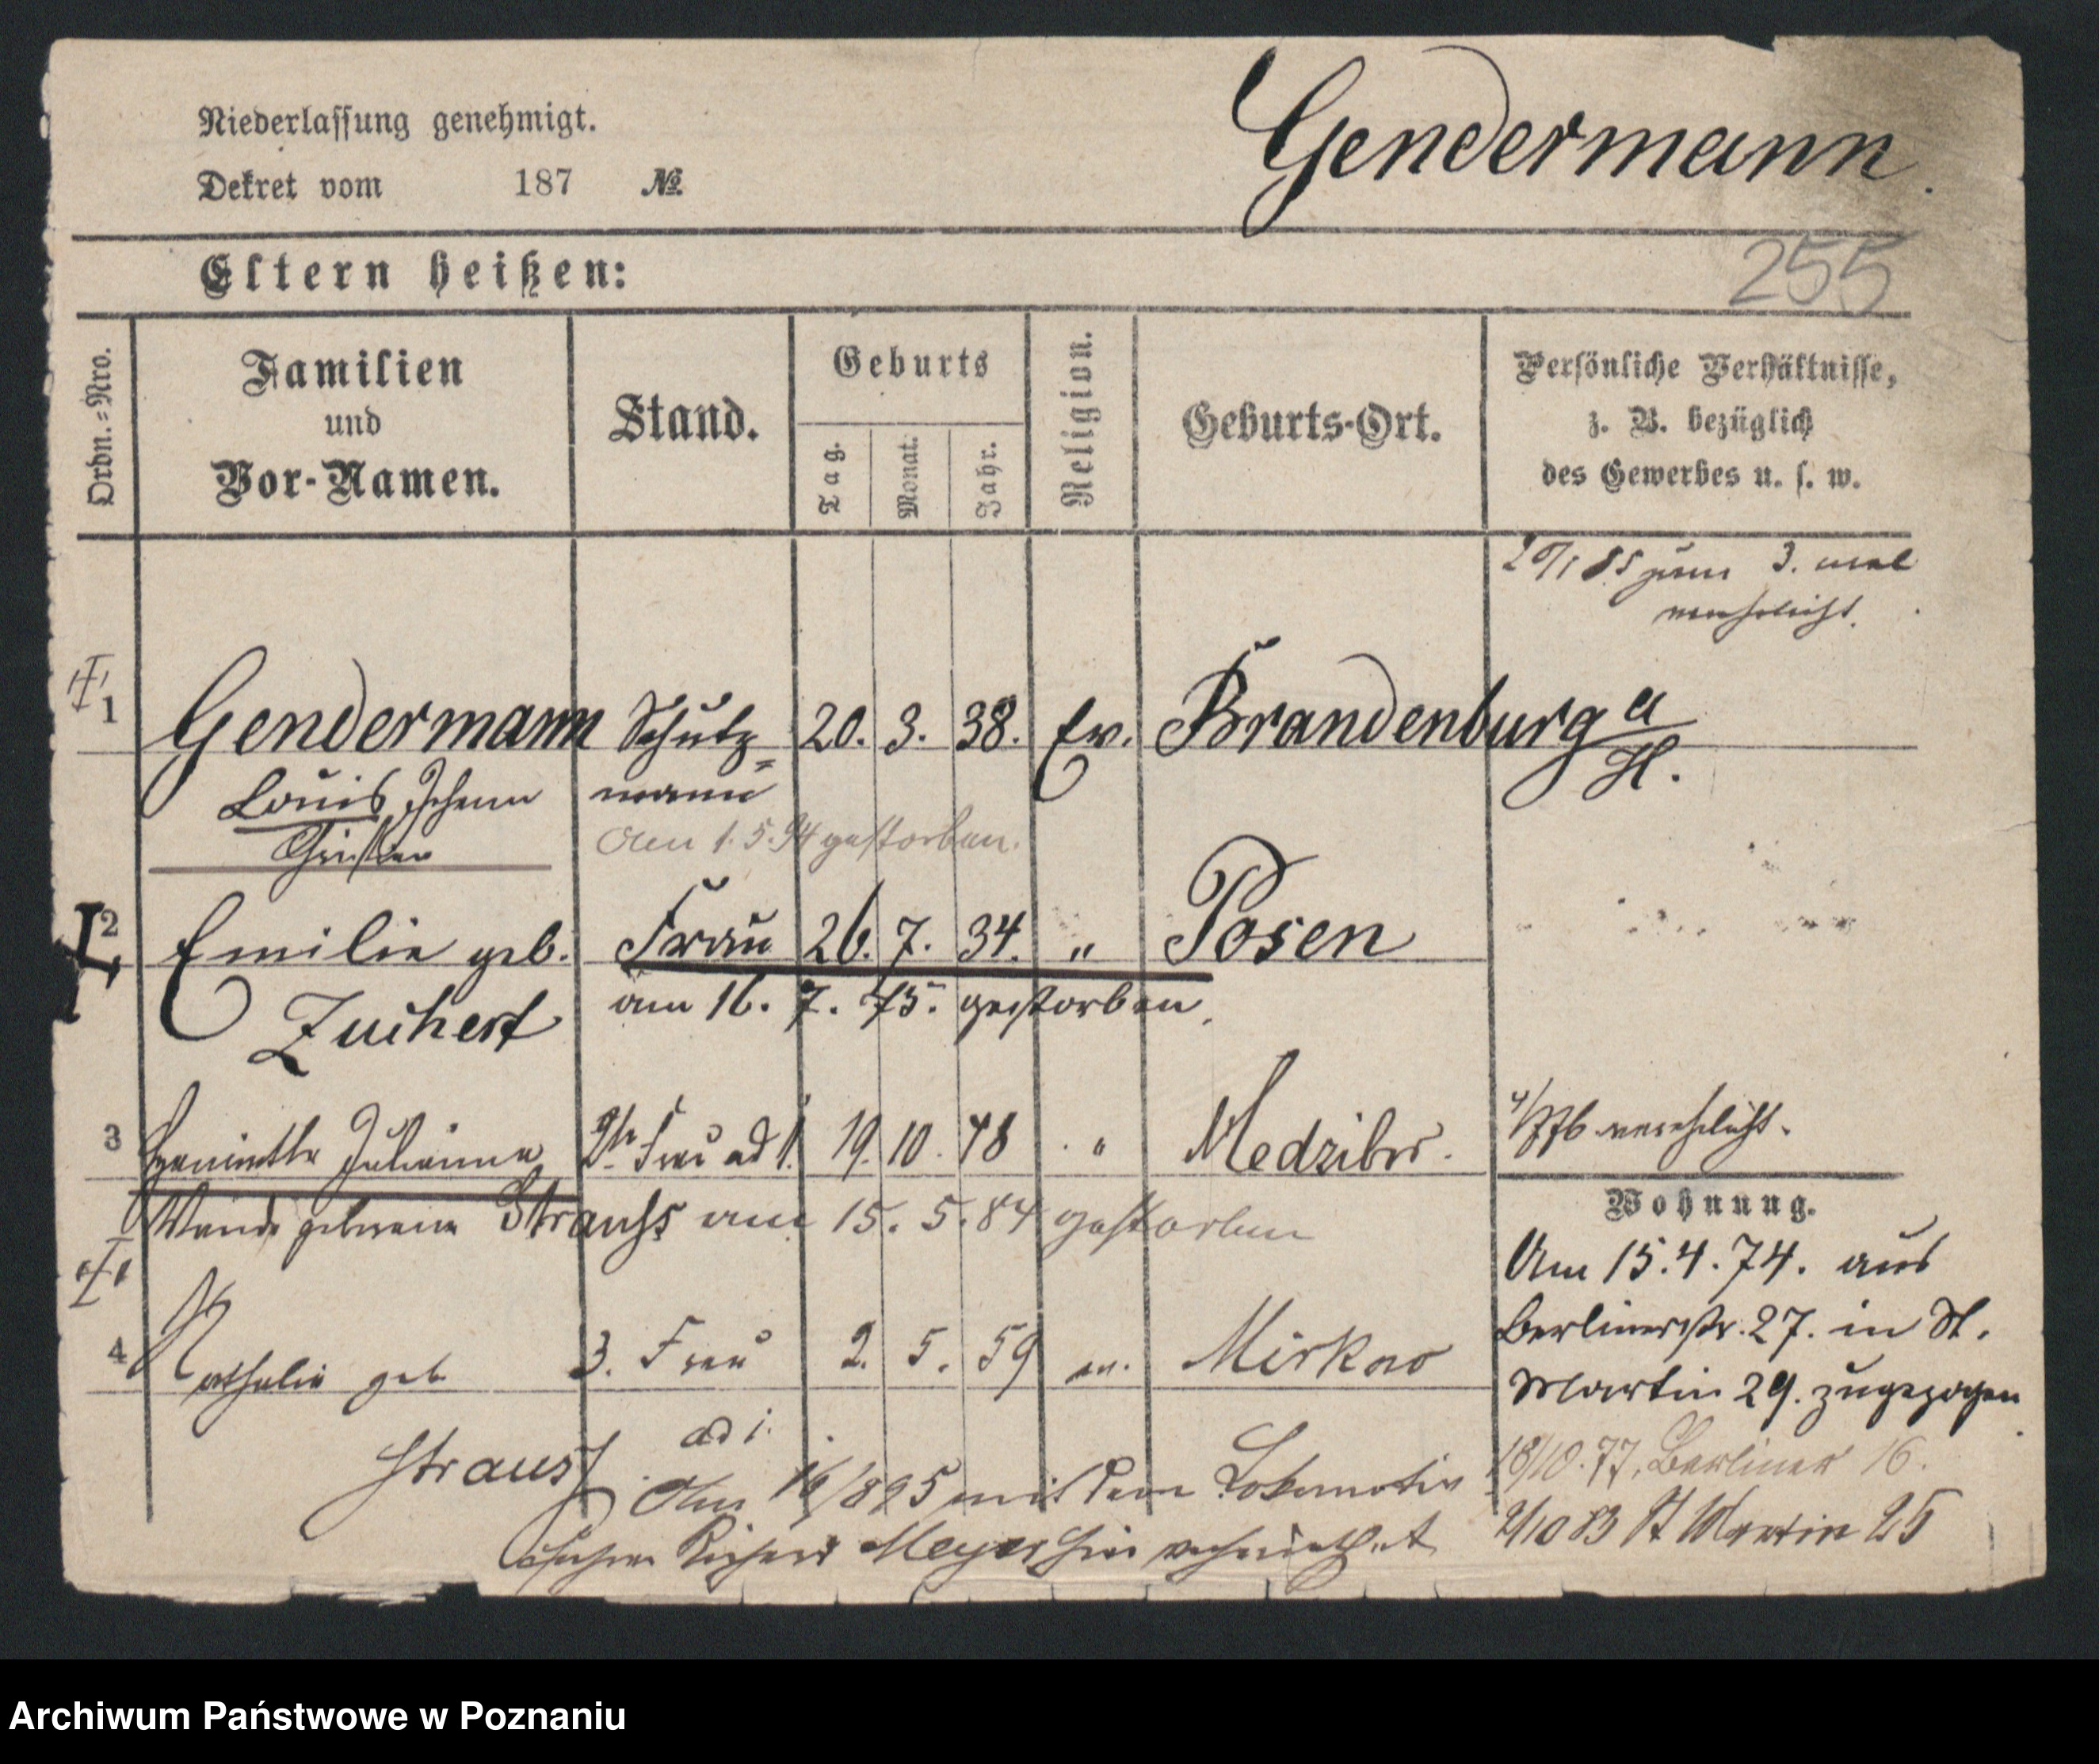 Niederlassung genehmigt.
Dekret vom 187 №
Gendermann.
Eltern heißen:
255
Ordn.=Nro.
Familien
und
Vor-Namen.
Stand.
Geburts
Tag.
Monat.
Jahr.
Religion.
Geburts-Ort.
Persönliche Verhältnisse,
z. B. bezüglich
des Gewerbes u. s. w.
85 zum 3. mal
verehelicht.
1 Gendermann Schutz= 20. 3. 38. Ev. Brandenburg a/H.
Louis Johann mann
Christian
Am 1. 5. 94 gestorben.
2 Emilie geb. Frau 26. 7. 34. " Posen
Zuchert am 16. 7. 75. gestorben.
3 Julianna 2te Frau ad 1. 19. 10. 48 " Medzibor. verehelicht.
geborene Strauss am 15. 5. 84 gestorben
4 Nathalie geb. 3. Frau 2. 5. 59 ev. Mirkow
Strauss ad 1.
mit dem Lokomotiv
Meyer verheirathet
Wohnung.
Am 15. 4. 74. aus
Berlinerstr. 27. in St.
Martin 29. zugezogen
18/10. 77. Berliner 16.
2/10 83 St Martin 25
Archiwum Państwowe w Poznaniu